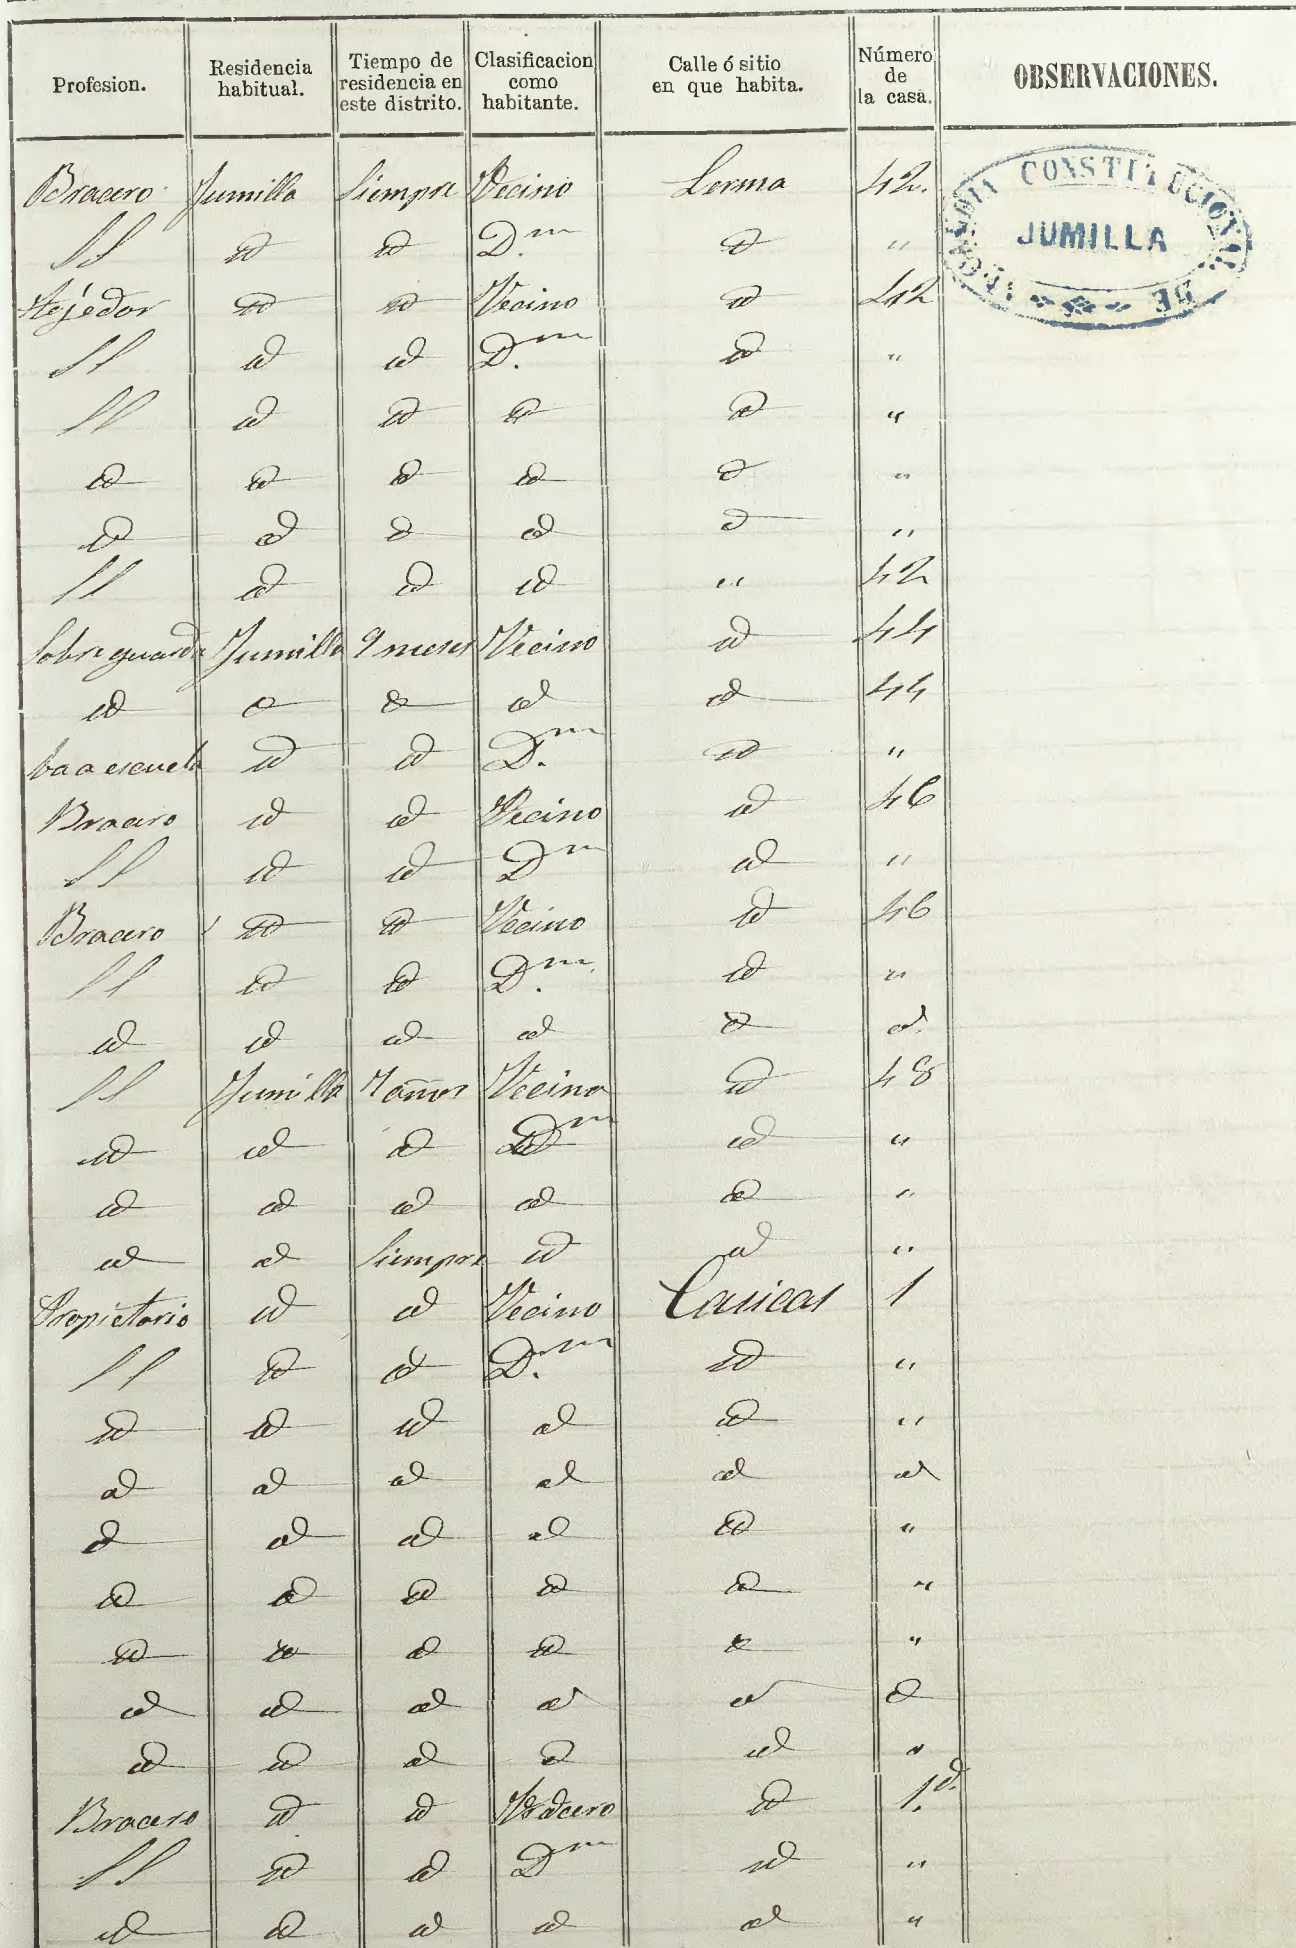 Profesion. Residencia habitual. Tiempo de residencia en este distrito. Clasificacion como habitante. Calle ó sitio en que habita. Número de la casa. OBSERVACIONES.
ALCALDIA CONSTITUCIONAL DE JUMILLA
Bracero Jumilla Siempre Vecino Lerma 42.
" id id D.m id "
Tejedor id id Vecino id 42
" id id D.m id "
" id id id id "
id id id id id "
id id id id id "
" id id id " 42
Sobreguarda Jumilla 9 meses Vecino id 44
id id id id id 44
ba a escuela id id D.m id "
Bracero id id Vecino id 46
" id id Dm id "
Bracero id id Vecino id 46
" id id D.m id "
id id id id id id.
" Jumilla 7 años Vecino id 48
id id id Dm id "
id id id id id "
id id Siempre id id "
Propietario id id Vecino Casicas 1
" id id D.m id "
id id id id id "
id id id id id id
id id id id id "
id id id id id "
id id id id id "
id id id id id id
id id id id id "
Bracero id id Bracero id 1.d.
" id id Dm id "
id id id id id "